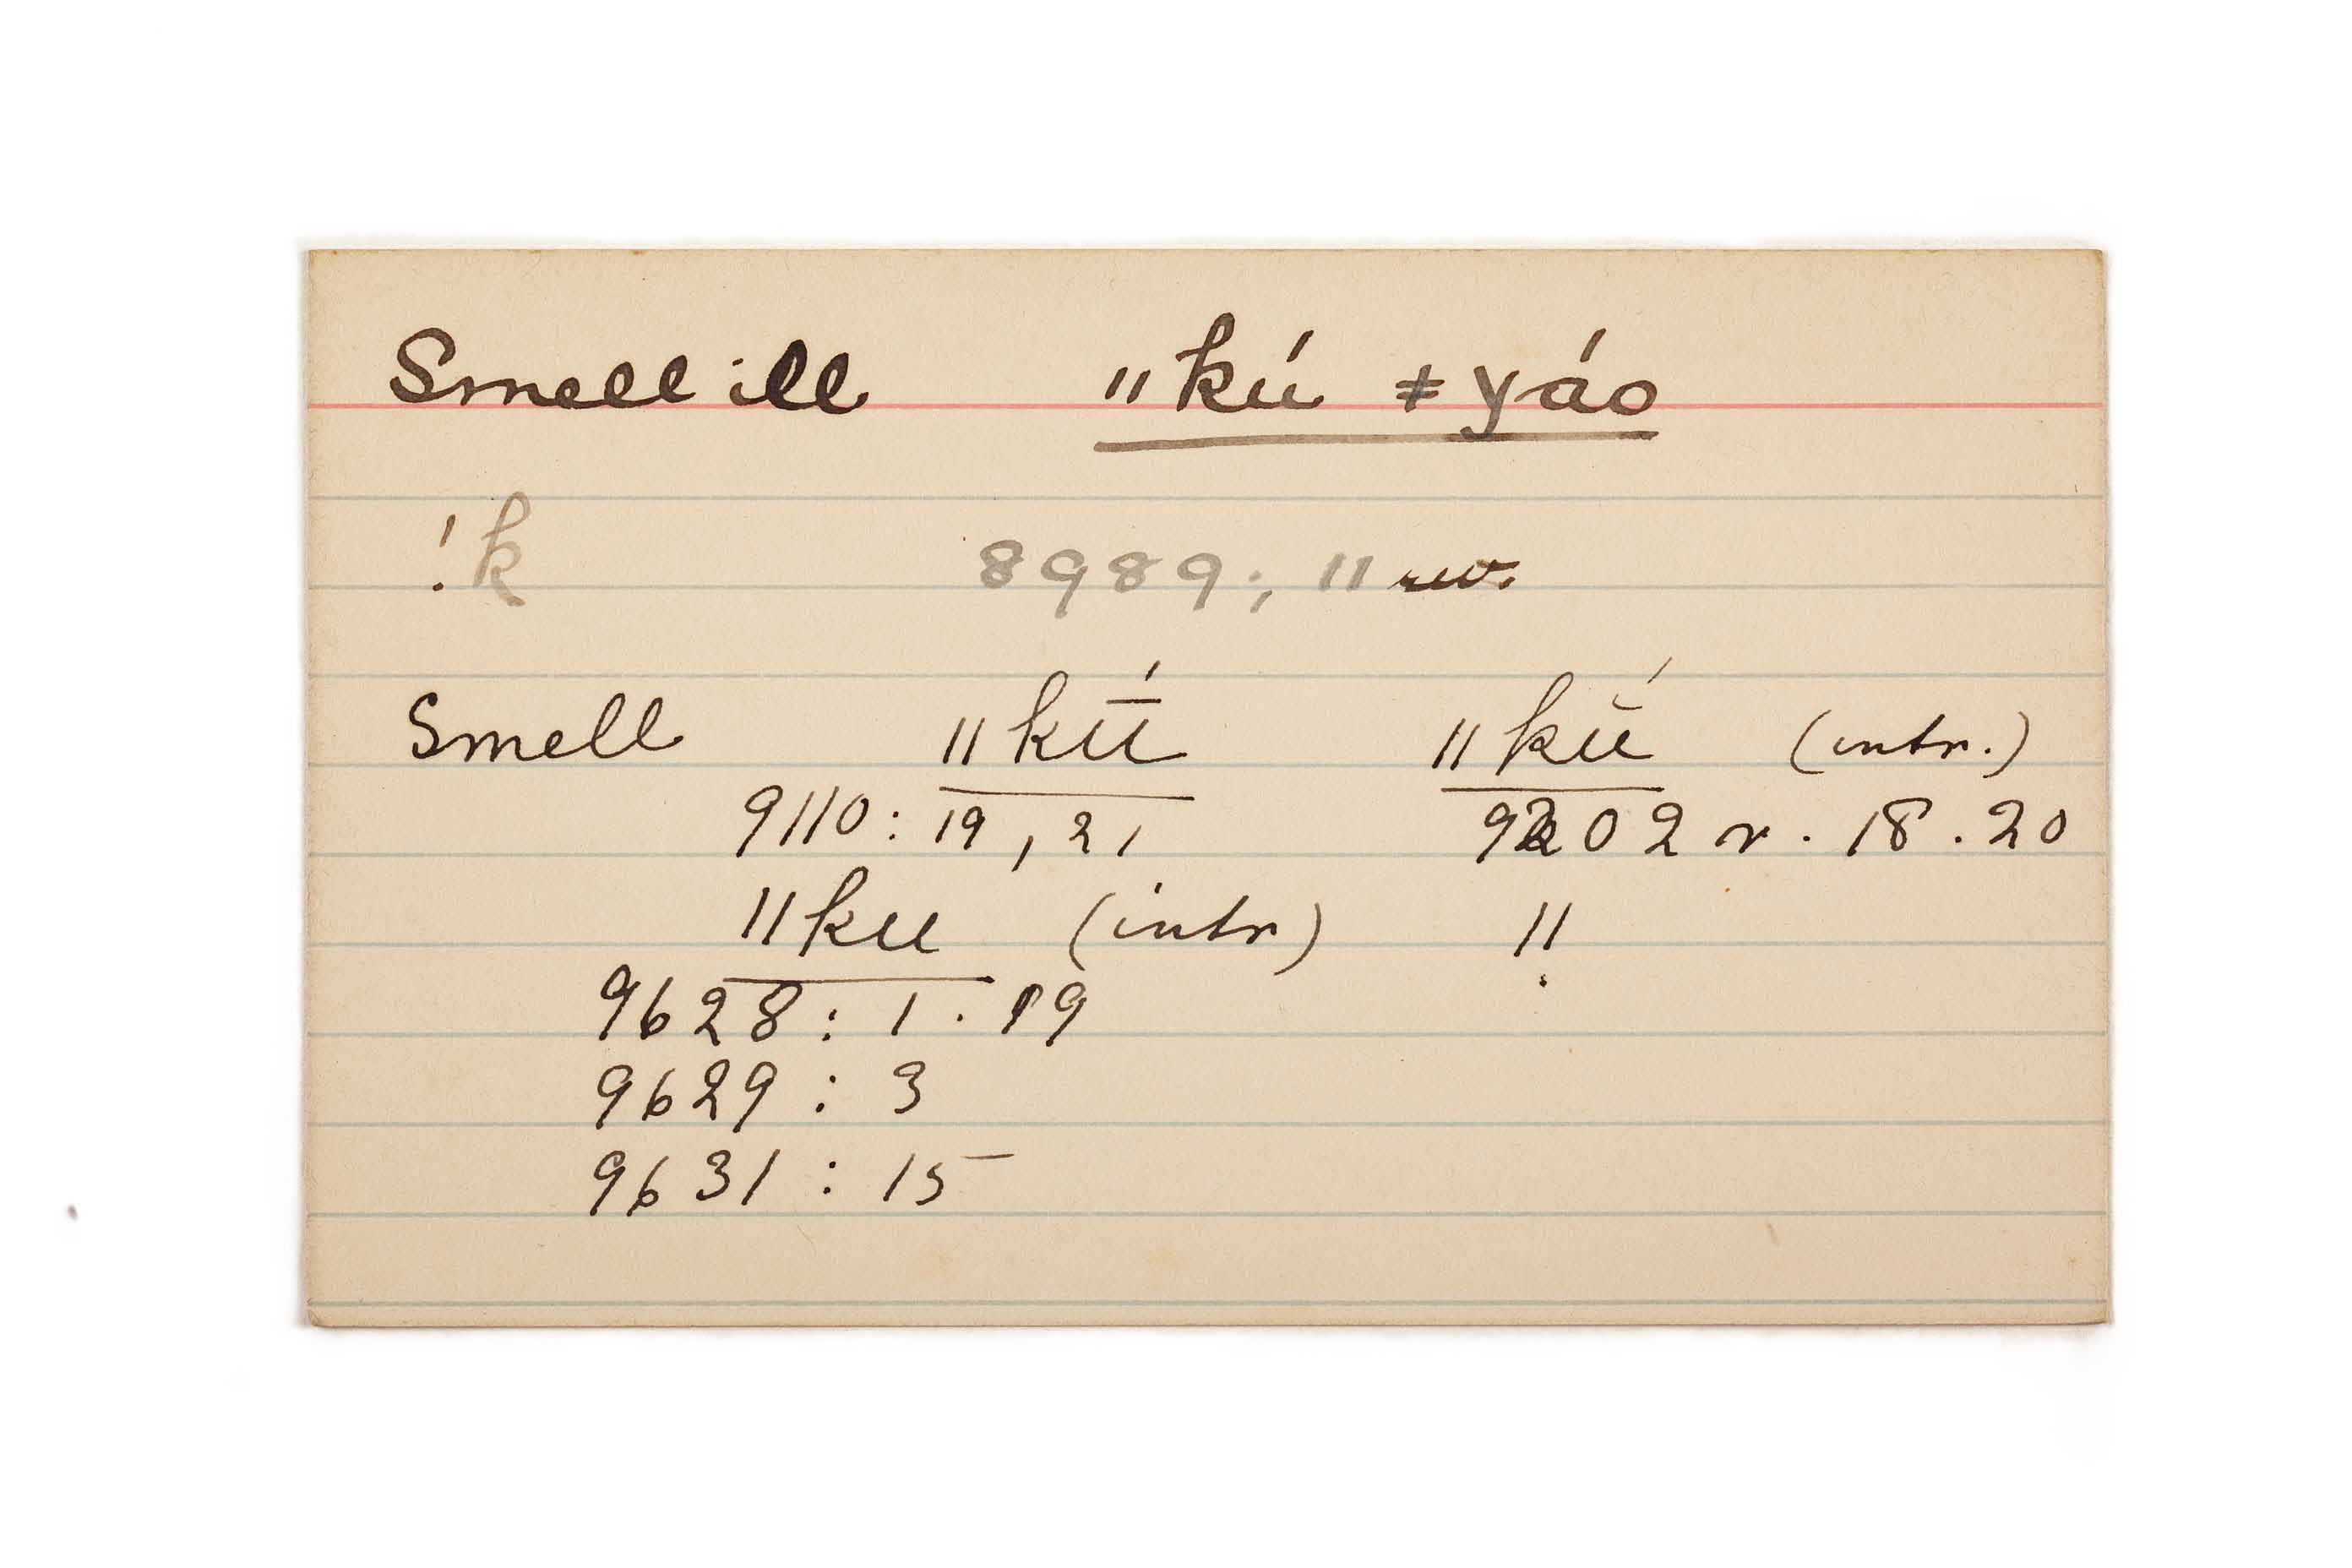 Smell ill ‖kú ǂyáo
!k 8989; 11 rev.
Smell ‖kū́ ‖kŭ́ (intr.)
9110: 19, 21 9202 r. 18. 20
‖ku (intr) ‖
9628: 1. 19
9629: 3
9631: 15